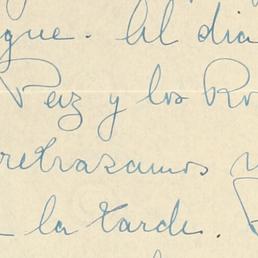 que. Al dia
Paz y los Ro
retrasamos
la tarde.